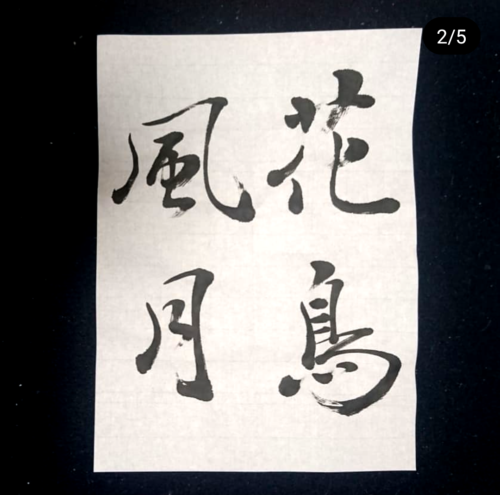 花鳥
風月
2/5